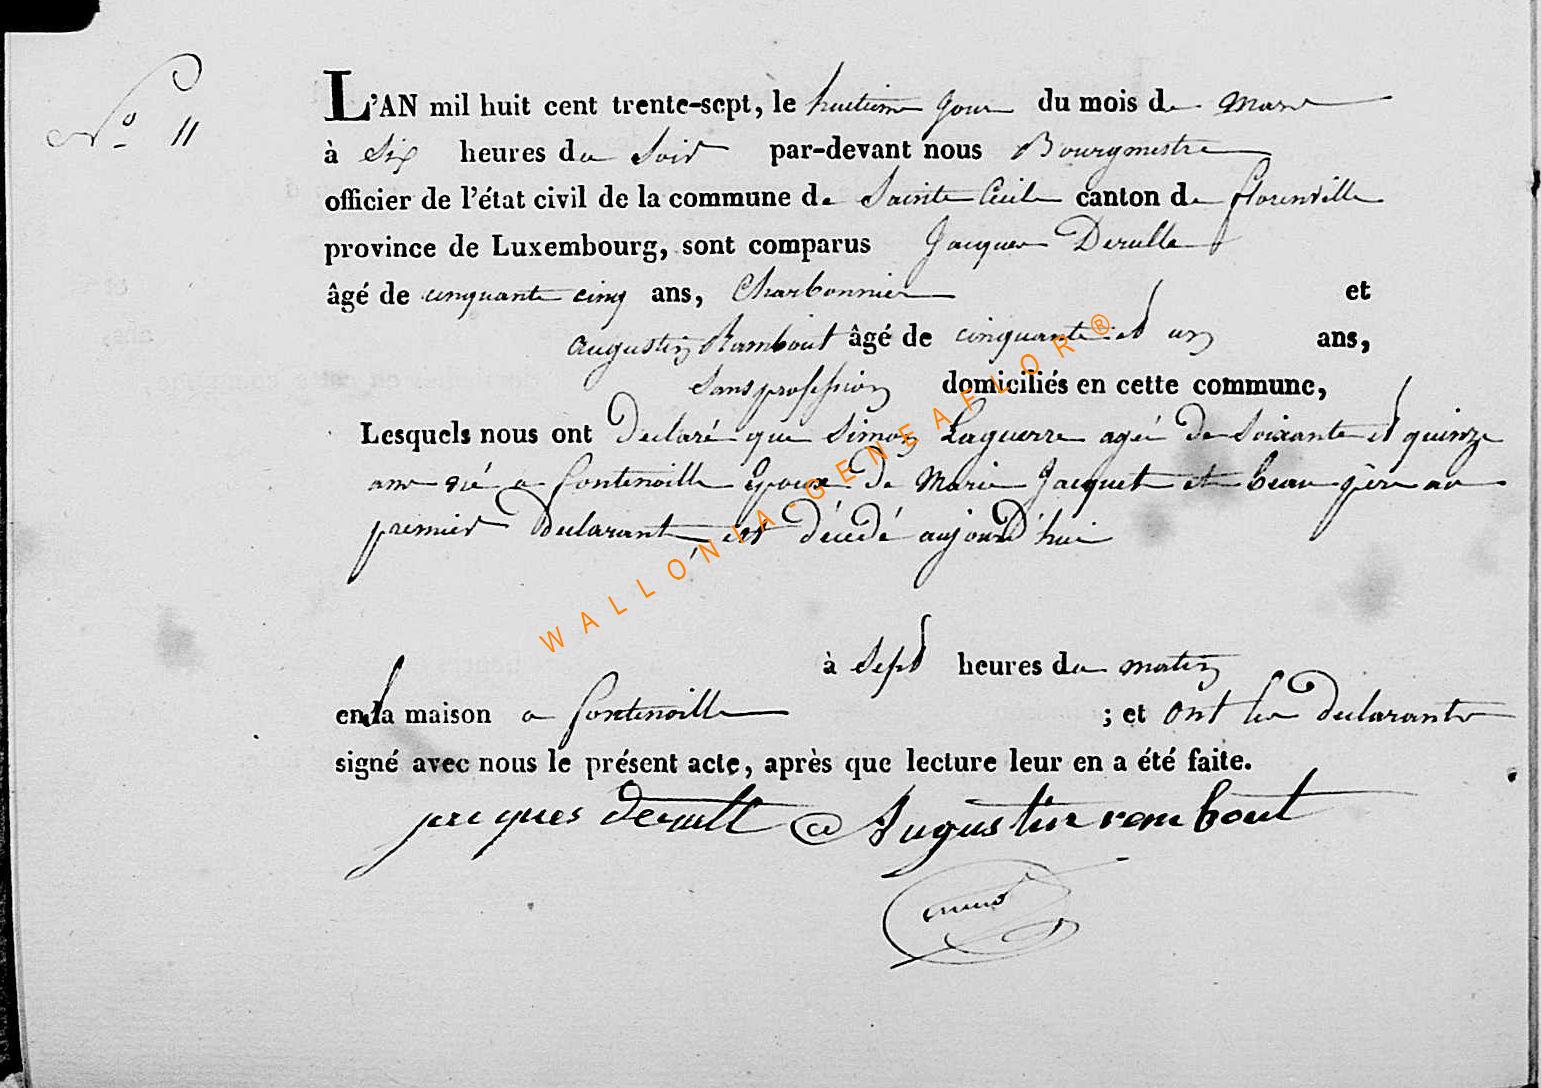 N.º 11
L'AN mil huit cent trente-sept, le huitieme jour du mois de Mars
à Six heures du Soir par-devant nous Bourgmestre
officier de l'état civil de la commune de Sainte Cécile canton de florenville
province de Luxembourg, sont comparus Jacques Derulle
âgé de cinquante cinq ans, Charbonnier et
augustin Rambout âgé de cinquante et un ans,
Sans profession domiciliés en cette commune,
Lesquels nous ont Declaré que Simon Laguerre agé de Soixante et quinze
ans né a fontenoille Epoux de Marie Jacquet et beau père au
premier Declarant est décédé aujourd'hui
à Sept heures du matin
en la maison a fontenoille ; et ont les declarants
signé avec nous le présent acte, après que lecture leur en a été faite.
jacques derulle Augustin rembout
WALLONIA-GENEAFLOR®